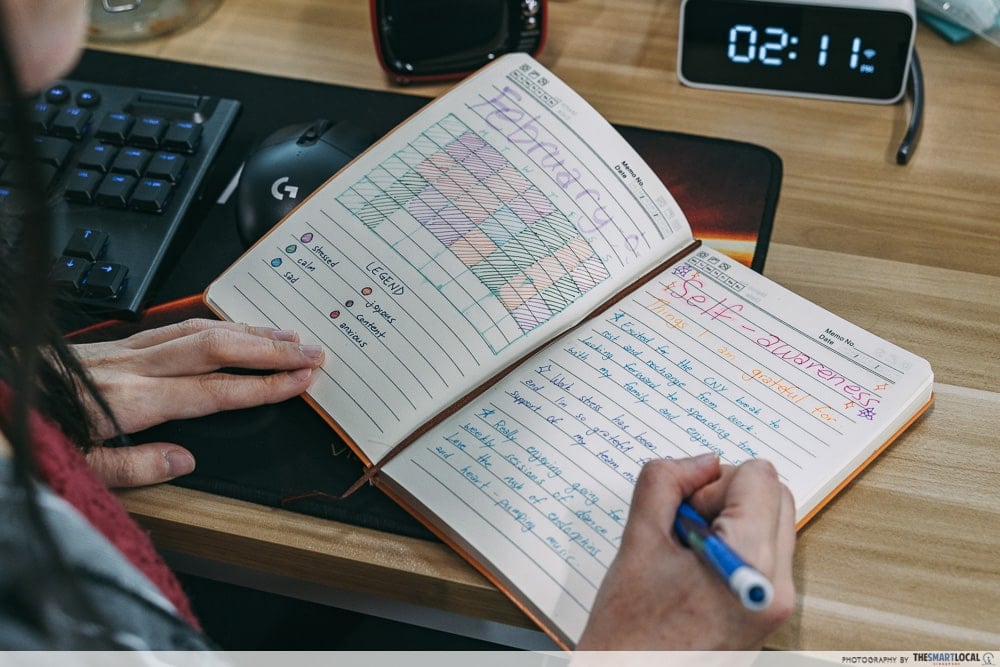 02:11
PM
G
Memo No.
Date / /
February :
LEGEND
stressed
calm
sad
joyous
content
anxious
Memo No.
Date / /
Self-awareness
Things I am grateful for
Excited for the CNY break to
rest and recharge from work
looking forward to spending time
with my family and enjoying
Work stress has been
and I'm so grateful
support of my team
Really enjoying going for
weekly sessions of dance
Love the rush of endorphins
and heart-pumping music.
PHOTOGRAPHY BY THESMARTLOCAL
SINGAPORE